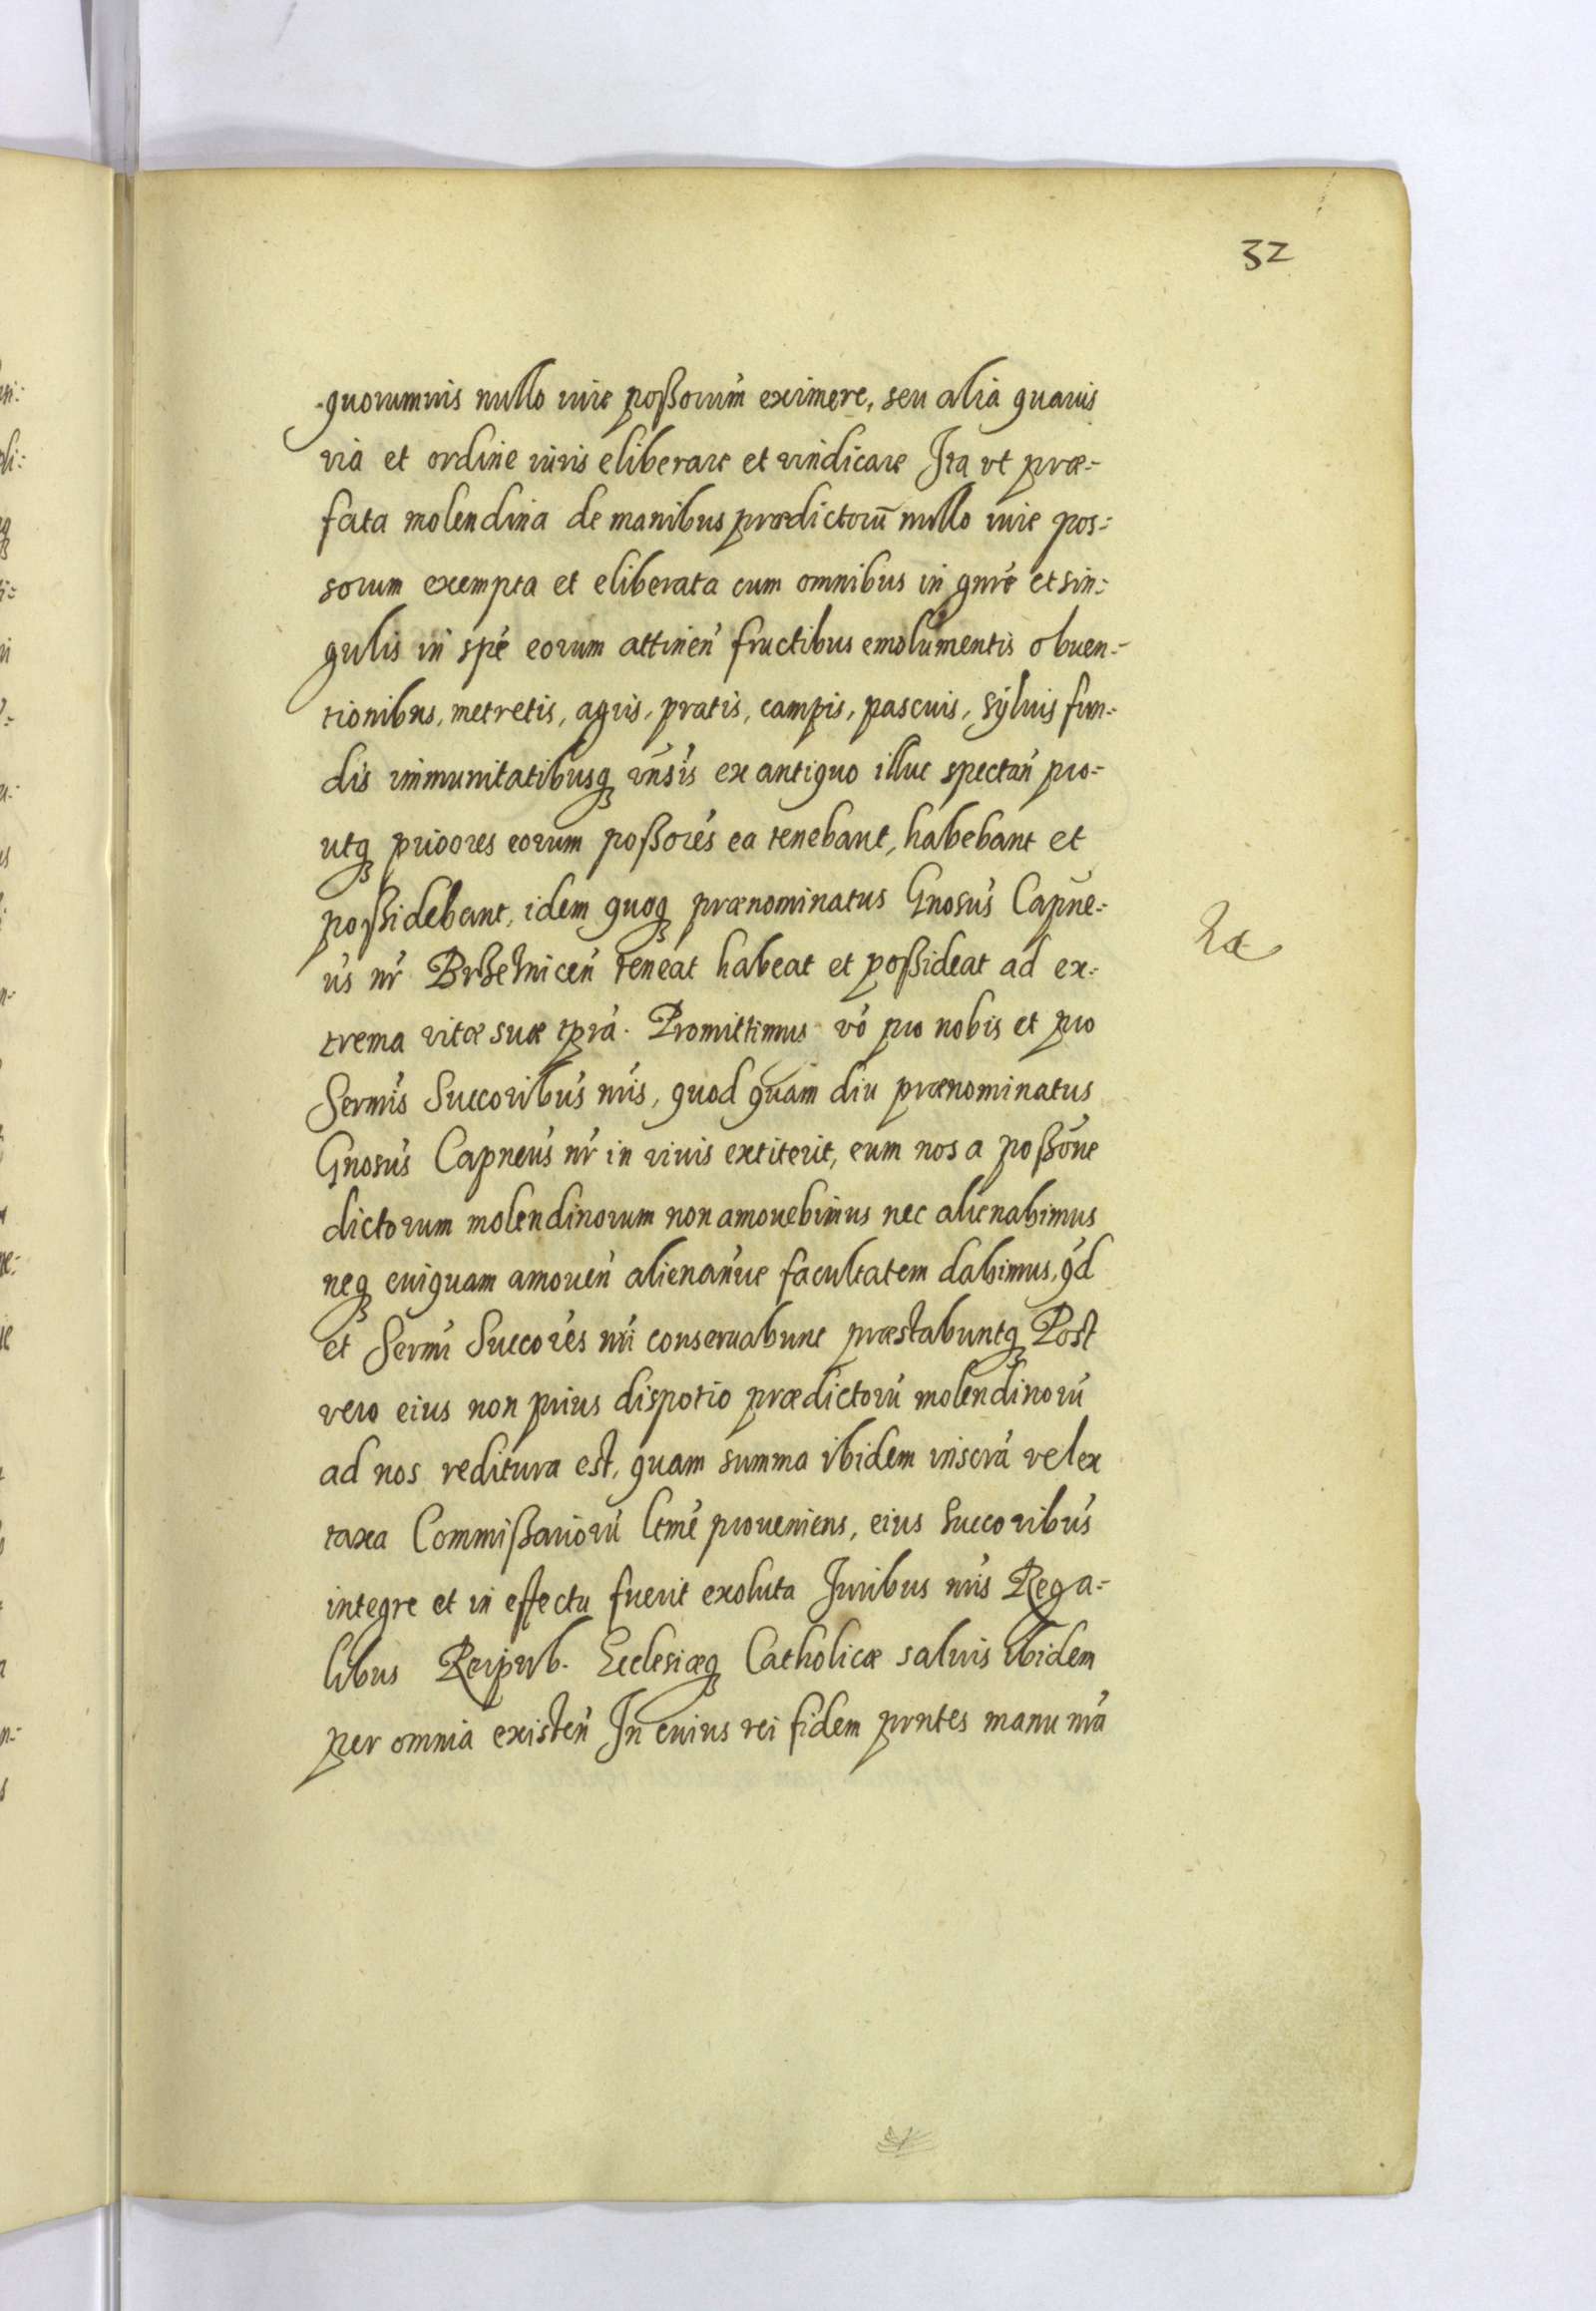 32
quorumuis nullo iure poßorum eximere, seu alia quauis
via et ordine iuris eliberare et vindicare Ita vt præ=
fata molendina de manibus prædictorū nullo iure pos=
sorum exempta et eliberata cum omnibus in gnre et sin=
gulis in spe eorum attinen fructibus emolumentis obuen=
tionibus, metretis, agris, pratis, campis, pascuis, syluis fun=
dis immunitatibusq vnsis ex antiquo illuc spectan pro=
utq priores eorum poßores ea tenebant, habebant et
poßidebant, idem quoq prænominatus Gnosus Capne=
us nr Brzeznicen teneat habeat et poßideat ad ex=
trema vitæ suæ tpra. Promittimus vo pro nobis et pro
Sermis Succoribus nris, quod quam diu prænominatus
Gnosus Capneus nr in viuis extiterit, eum nos a poßone
dictorum molendinorum non amouebimus nec alienabimus
neq cuiquam amouen alienanue facultatem dabimus, qd
et Sermi Succores nri conseruabunt præstabuntq Post
vero eius non prius dispotio prædictorū molendinorū
ad nos reditura est, quam summa ibidem inscra vel ex
taxa Commißariorū ltme proueniens, eius Succoribus
integre et in effectu fuerit exoluta Iuribus nris Rega=
libus Reipub. Ecclesiæq Catholicæ saluis ibidem
per omnia existen In cuius rei fidem prntes manu nra